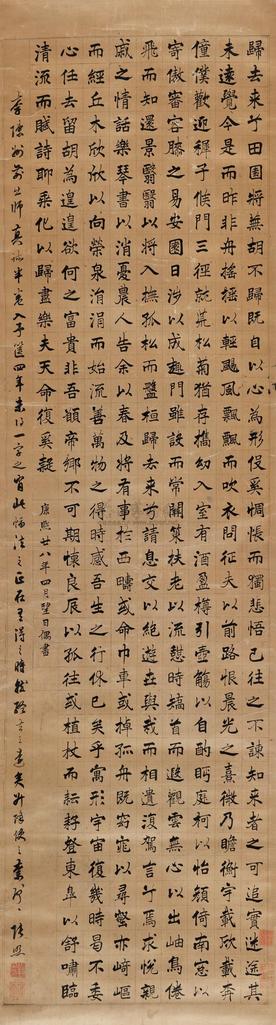 歸去來兮田園將蕪胡不歸既自以心為形役奚惆悵而獨悲悟已往之不諫知來者之可追實迷途其
未遠覺今是而昨非舟搖搖以輕颺風飄飄而吹衣問征夫以前路恨晨光之熹微乃瞻衡宇載欣載奔
僮僕歡迎稚子候門三徑就荒松菊猶存攜幼入室有酒盈樽引壺觴以自酌眄庭柯以怡顏倚南窓以
寄傲審容膝之易安園日涉以成趣門雖設而常關策扶老以流憇時矯首而遐觀雲無心以出岫鳥倦
飛而知還景翳翳以將入撫孤松而盤桓歸去來兮請息交以絕遊世與我而相遺復駕言兮焉求悅親
戚之情話樂琴書以消憂農人告余以春及將有事於西疇或命巾車或棹孤舟既窈窕以尋壑亦崎嶇
而經丘木欣欣以向榮泉涓涓而始流善萬物之得時感吾生之行休已矣乎寓形宇宙復幾時曷不委
心任去留胡為遑遑欲何之富貴非吾願帝鄉不可期懷良辰以孤往或植杖而耘耔登東皋以舒嘯臨
清流而賦詩聊乘化以歸盡樂夫天命復奚疑
康熙廿八年四月望日偶書